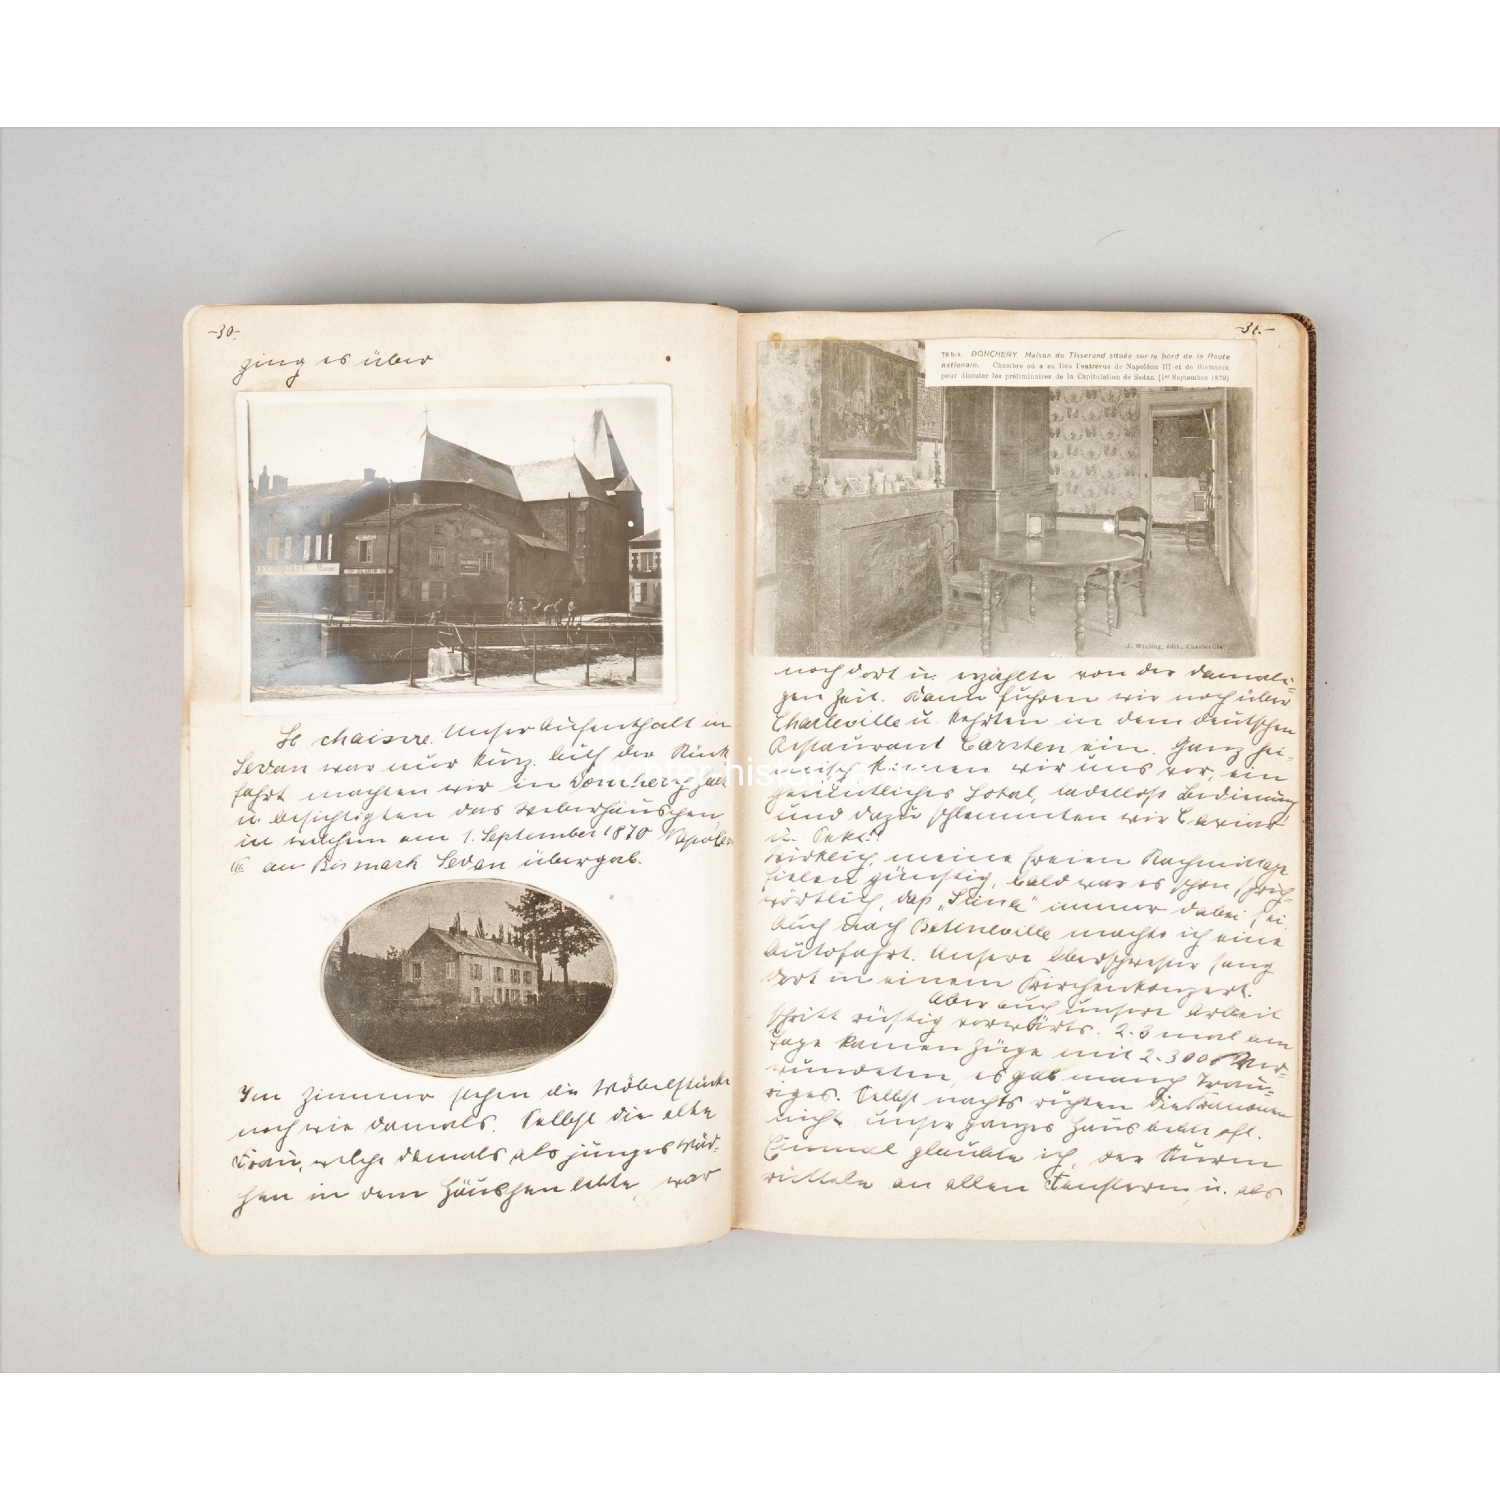 -30-
ging es über
Le chaisne. Unser Aufenthalt in
Sedan war nur kurz. Auf der Rück
fahrt machten wir in Doncherz halt
u. besichtigten das Weberhäuschen,
in welchem am 1. September 1870 Napoleon
an Bismark Sedan übergab.
Im Zimmer stehen die Möbelstücke
noch wie damals. Selbst die alte
Frau, welche damals als junges Mäd-
chen in dem Häuschen lebte, war
-31-
78 bis. DONCHERY Maison du Tisserand située sur le bord de la Route
nationale. Chambre où a eu lieu l'entrevue de Napoléon III et de Bismarck
pour discuter les préliminaires de la Capitulation de Sedan (1er Septembre 1870)
J. Winling, édit., Charleville
noch dort u. erzählte von der damali-
gen Zeit. Dann fuhren wir noch über
Charleville u. kehrten in dem deutschen
Restaurant Carsten ein. Ganz hei-
misch kamen wir uns vor, ein
gemütliches Lokal, tadellose Bedienung
und dazu schlemmten wir Caviar
u. Sekt!
Wirklich, meine freien Nachmittage
fielen günstig, bald war es schon sprich-
wörtlich, daß immer dabei sei.
Auch nach Betineville machte ich eine
Autofahrt. Unsere Oberschwester sang
dort in einem Kirchenkonzert.
Aber auch unsere Arbeit
schritt rüstig vorwärts. 2-3 mal am
Tage kamen Züge mit 2-300 Ver-
wundeten, es gab manch Trau-
riges. Selbst nachts ruhten die Kanonen
nicht unser ganzes Haus bebte oft.
Einmal glaubte ich, der Sturm
rüttele an allen Fenstern, u. als